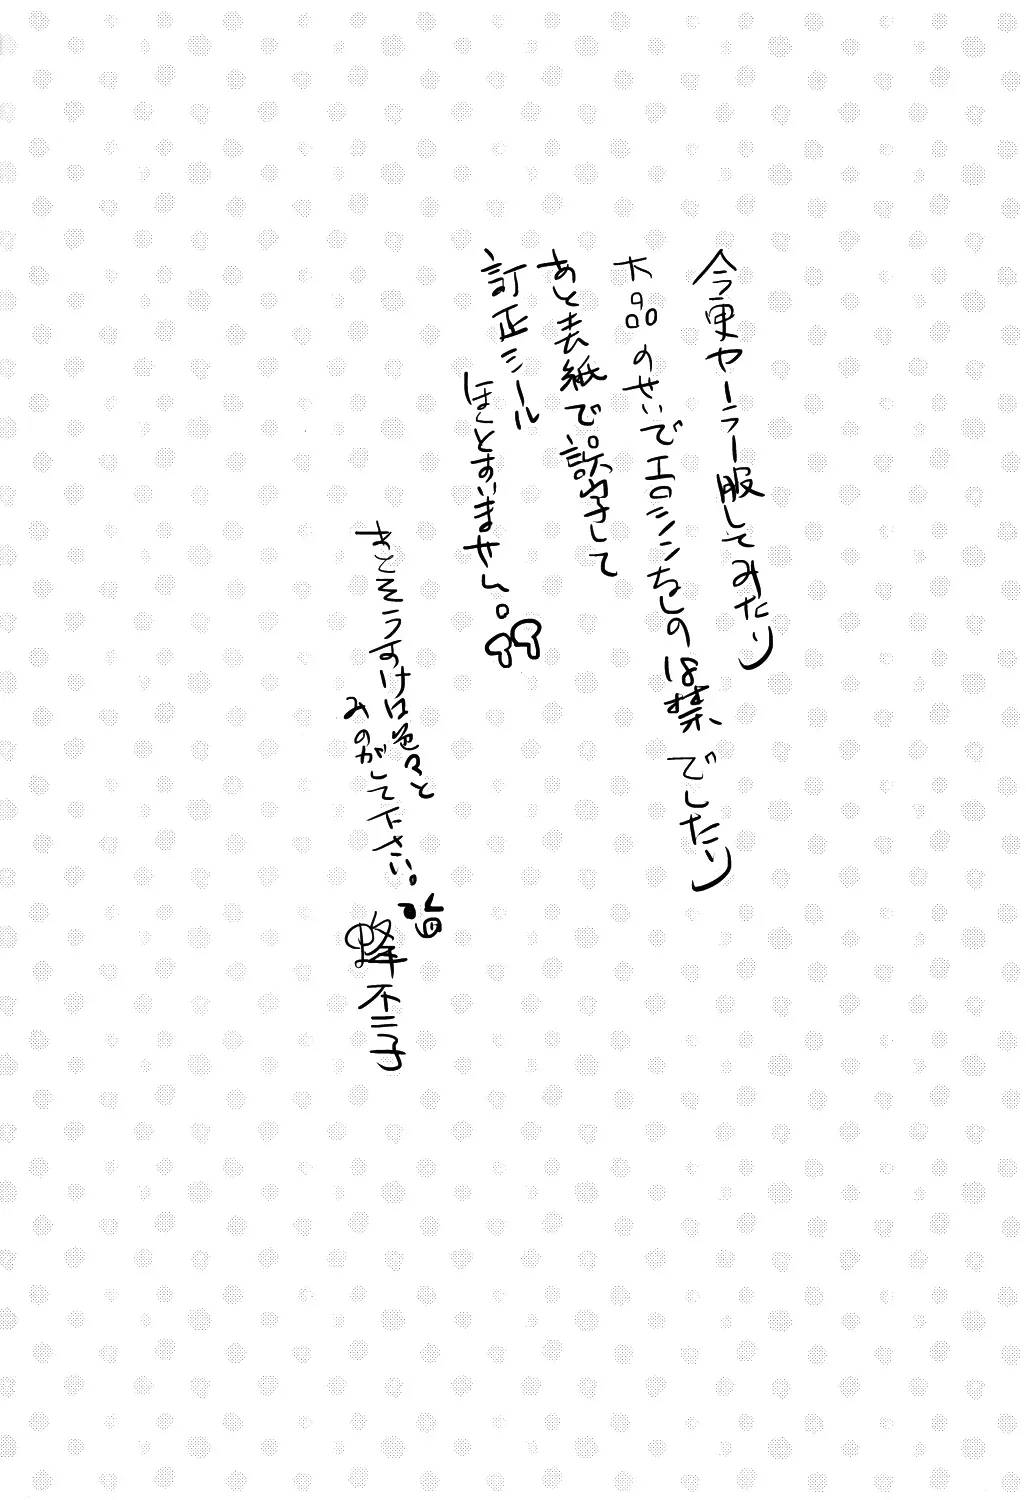 今更セーラー服してみたり
本品のせいでエロシーンなしの18禁でしたり
あと表紙で誤字して
訂正シール
ほんとすいません。
あとそうすけは色々と
みのがして下さい。
蜂不二子